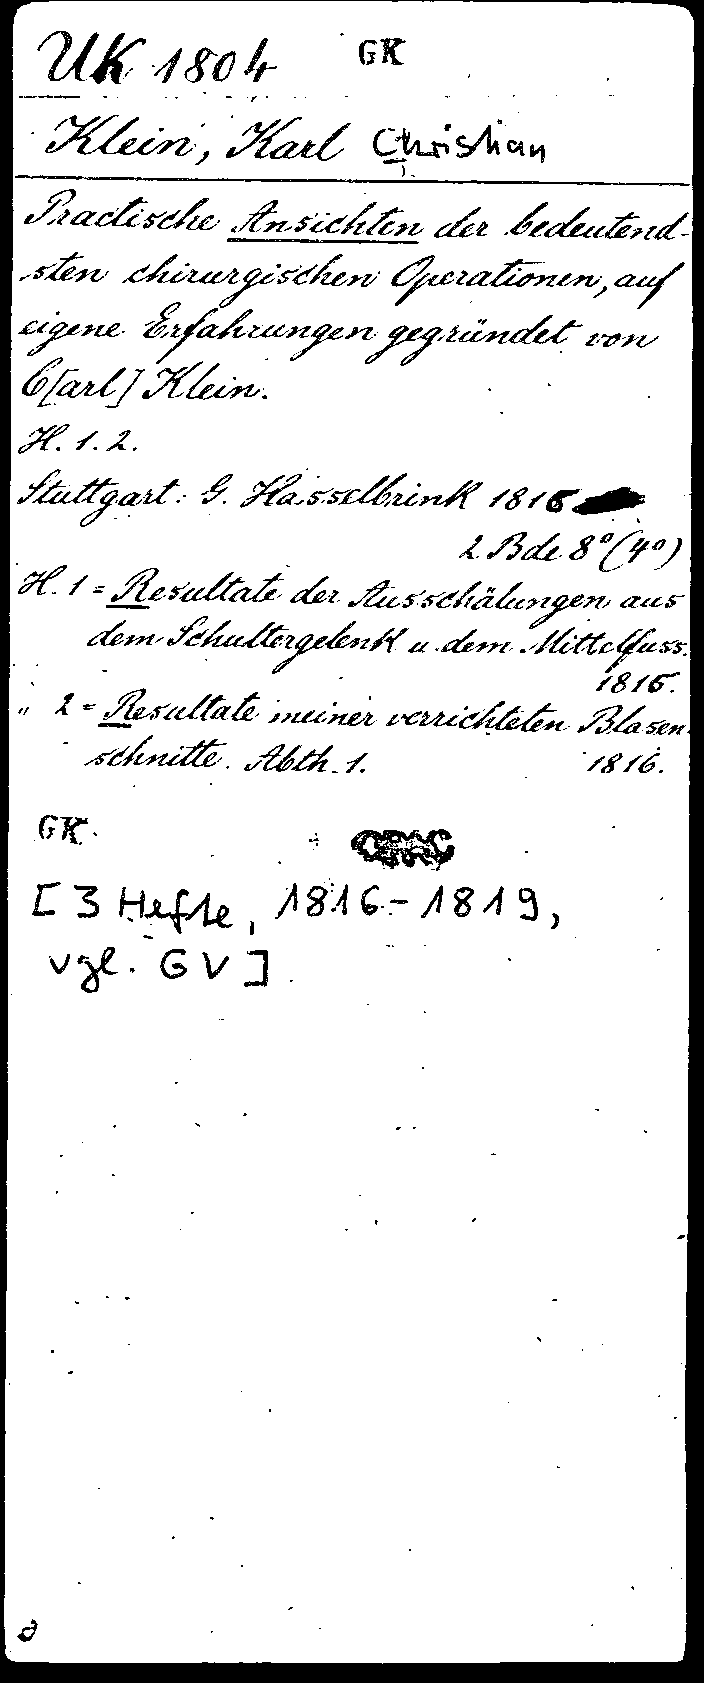 UK 1804 GK
Klein, Karl Christian
Practische Ansichten der bedeutend-
sten chirurgischen Operationen, auf
eigene Erfahrungen gegründet von
C[arl] Klein.
H. 1. 2.
Stuttgart: G. Hasselbrink 1816
2 Bde 8° (4°)
H. 1 = Resultate der Ausschälungen aus
dem Schultergelenk u. dem Mittelfuss.
1816.
" 2 = Resultate meiner verrichteten Blasen-
schnitte. Abth. 1. 1816.
GK
[3 Hefte, 1816-1819,
vgl. GV]